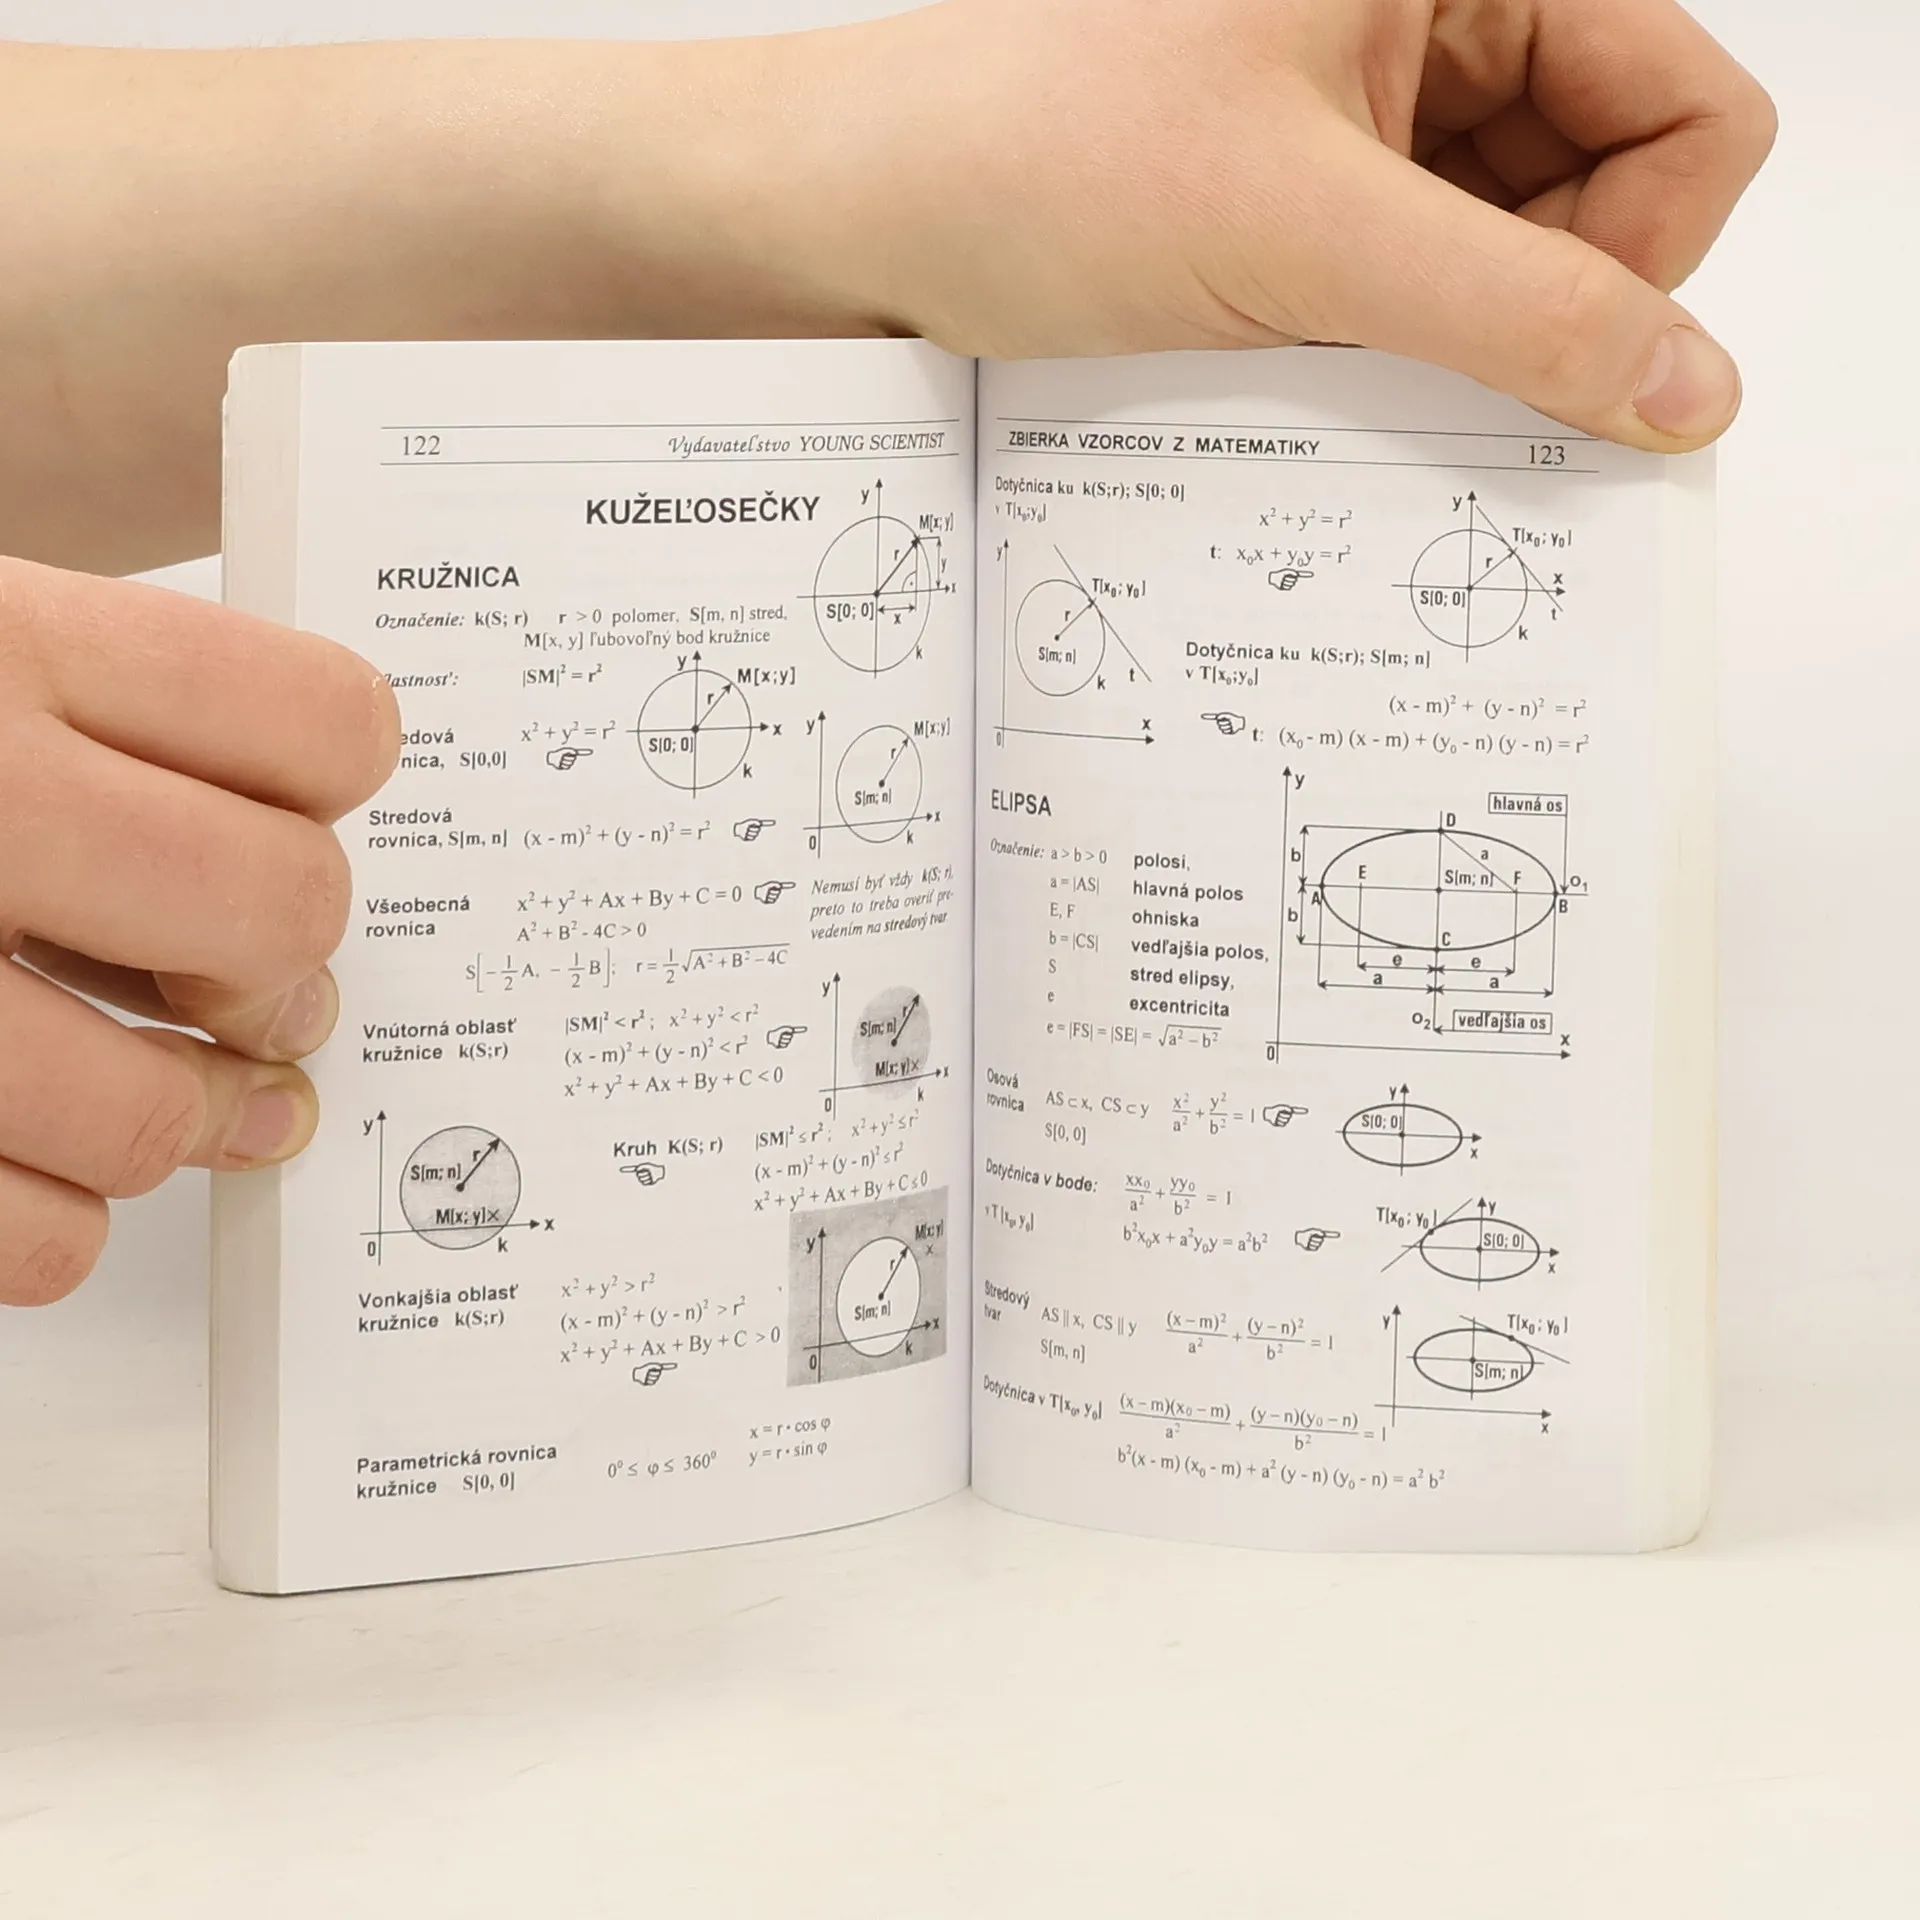 122 Vydavateľstvo YOUNG SCIENTIST
KUŽEĽOSEČKY
KRUŽNICA
Označenie: k(S; r) r > 0 polomer, S[m, n] stred,
M[x, y] ľubovoľný bod kružnice
|SM|² = r²
x² + y² = r²
S[0,0]
Stredová
rovnica, S[m, n] (x - m)² + (y - n)² = r²
Všeobecná
rovnica
x² + y² + Ax + By + C = 0
A² + B² - 4C > 0
Nemusí byť vždy k(S; r),
preto to treba overiť pre-
vedením na stredový tvar.
S[-1/2 A, -1/2 B]; r = 1/2 √A² + B² – 4C
Vnútorná oblasť
kružnice k(S;r)
|SM|² < r²; x² + y² < r²
(x - m)² + (y - n)² < r²
x² + y² + Ax + By + C < 0
Kruh K(S; r)
|SM|² ≤ r²; x² + y² ≤ r²
(x - m)² + (y - n)² ≤ r²
x² + y² + Ax + By + C ≤ 0
Vonkajšia oblasť
kružnice k(S;r)
x² + y² > r²
(x - m)² + (y - n)² > r²
x² + y² + Ax + By + C > 0
Parametrická rovnica
kružnice S[0, 0]
0° ≤ φ ≤ 360°
x = r • cos φ
y = r • sin φ
y
M[x; y]
r
y
x
S[0; 0]
x
k
y
M[x;y]
r
x
S[0; 0]
k
y
M[x;y]
r
S[m; n]
x
0
k
y
r
S[m; n]
M[x; y]×
x
0
k
y
r
S[m; n]
M[x; y]×
x
0
k
y
M[x; y]
×
r
S[m; n]
x
0
k
ZBIERKA VZORCOV Z MATEMATIKY 123
Dotyčnica ku k(S;r); S[0; 0]
v T[x₀;y₀]
x² + y² = r²
t: x₀x + y₀y = r²
y
T[x₀; y₀]
r
x
S[0; 0]
t
k
y
T[x₀; y₀]
r
S[m; n]
k
t
x
0
Dotyčnica ku k(S;r); S[m; n]
v T[x₀;y₀]
(x - m)² + (y - n)² = r²
t: (x₀ - m) (x - m) + (y₀ - n) (y - n) = r²
ELIPSA
Označenie: a > b > 0 polosi,
a = |AS| hlavná polos
E, F ohniska
b = |CS| vedľajšia polos,
S stred elipsy,
e excentricita
e = |FS| = |SE| = √a² – b²
y
hlavná os
D
b
a
E
S[m; n]
F
O₁
A
B
b
C
e
e
a
a
O₂
vedľajšia os
x
0
Osová
rovnica
AS ⊂ x, CS ⊂ y x²/a² + y²/b² = 1
S[0, 0]
y
S[0; 0]
x
Dotyčnica v bode: xx₀/a² + yy₀/b² = 1
v T[x₀, y₀]
b²x₀x + a²y₀y = a²b²
T[x₀; y₀]
y
S[0; 0]
x
Stredový
tvar
AS || x, CS || y (x – m)²/a² + (y – n)²/b² = 1
S[m, n]
y
T[x₀; y₀]
S[m; n]
x
Dotyčnica v T[x₀, y₀] (x – m)(x₀ – m)/a² + (y – n)(y₀ – n)/b² = 1
b²(x - m) (x₀ - m) + a² (y - n) (y₀ - n) = a² b²